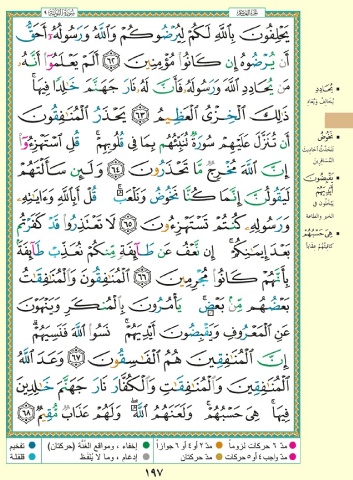 الجزء العاشر
سورة التوبة ٩
يَحْلِفُونَ بِاللَّهِ لَكُمْ لِيُرْضُوكُمْ وَاللَّهُ وَرَسُولُهُ أَحَقُّ
أَن يُرْضُوهُ إِن كَانُوا مُؤْمِنِينَ ٦٢ أَلَمْ يَعْلَمُوا أَنَّهُ
مَن يُحَادِدِ اللَّهَ وَرَسُولَهُ فَأَنَّ لَهُ نَارَ جَهَنَّمَ خَالِدًا فِيهَا
ذَلِكَ الْخِزْيُ الْعَظِيمُ ٦٣ يَحْذَرُ الْمُنَافِقُونَ
أَن تُنَزَّلَ عَلَيْهِمْ سُورَةٌ تُنَبِّئُهُم بِمَا فِي قُلُوبِهِمْ قُلِ اسْتَهْزِءُوا
إِنَّ اللَّهَ مُخْرِجٌ مَّا تَحْذَرُونَ ٦٤ وَلَئِن سَأَلْتَهُمْ
لَيَقُولُنَّ إِنَّمَا كُنَّا نَخُوضُ وَنَلْعَبُ قُلْ أَبِاللَّهِ وَآيَاتِهِ
وَرَسُولِهِ كُنتُمْ تَسْتَهْزِءُونَ ٦٥ لَا تَعْتَذِرُوا قَدْ كَفَرْتُم
بَعْدَ إِيمَانِكُمْ إِن نَّعْفُ عَن طَائِفَةٍ مِّنكُمْ نُعَذِّبْ طَائِفَةً
بِأَنَّهُمْ كَانُوا مُجْرِمِينَ ٦٦ الْمُنَافِقُونَ وَالْمُنَافِقَاتُ
بَعْضُهُم مِّن بَعْضٍ يَأْمُرُونَ بِالْمُنكَرِ وَيَنْهَوْنَ
عَنِ الْمَعْرُوفِ وَيَقْبِضُونَ أَيْدِيَهُمْ نَسُوا اللَّهَ فَنَسِيَهُمْ
إِنَّ الْمُنَافِقِينَ هُمُ الْفَاسِقُونَ ٦٧ وَعَدَ اللَّهُ
الْمُنَافِقِينَ وَالْمُنَافِقَاتِ وَالْكُفَّارَ نَارَ جَهَنَّمَ خَالِدِينَ
فِيهَا هِيَ حَسْبُهُمْ وَلَعَنَهُمُ اللَّهُ وَلَهُمْ عَذَابٌ مُّقِيمٌ ٦٨
يُحَادِدِ
يُخالِف ويُعادِ
نَخُوضُ
نتحدّث أحاديث
المسافرين
يَقْبِضُونَ
أَيْدِيَهُمْ
يبخلون في
الخير والطاعة
هِيَ حَسْبُهُمْ
كافيتهم عقاباً
مدّ ٦ حركات لزوماً
مدّ ٢ أو ٤ أو ٦ جوازاً
إخفاء، ومواقع الغُنَّة (حركتان)
تفخيم
مدّ واجب ٤ أو ٥ حركات
مدّ حركتان
إدغام، وما لا يُلفَظ
قلقلة
١٩٧